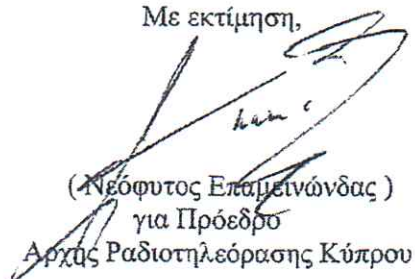 Με εκτίμηση,
( Νεόφυτος Επαμεινώνδας )
για Πρόεδρο
Αρχής Ραδιοτηλεόρασης Κύπρου